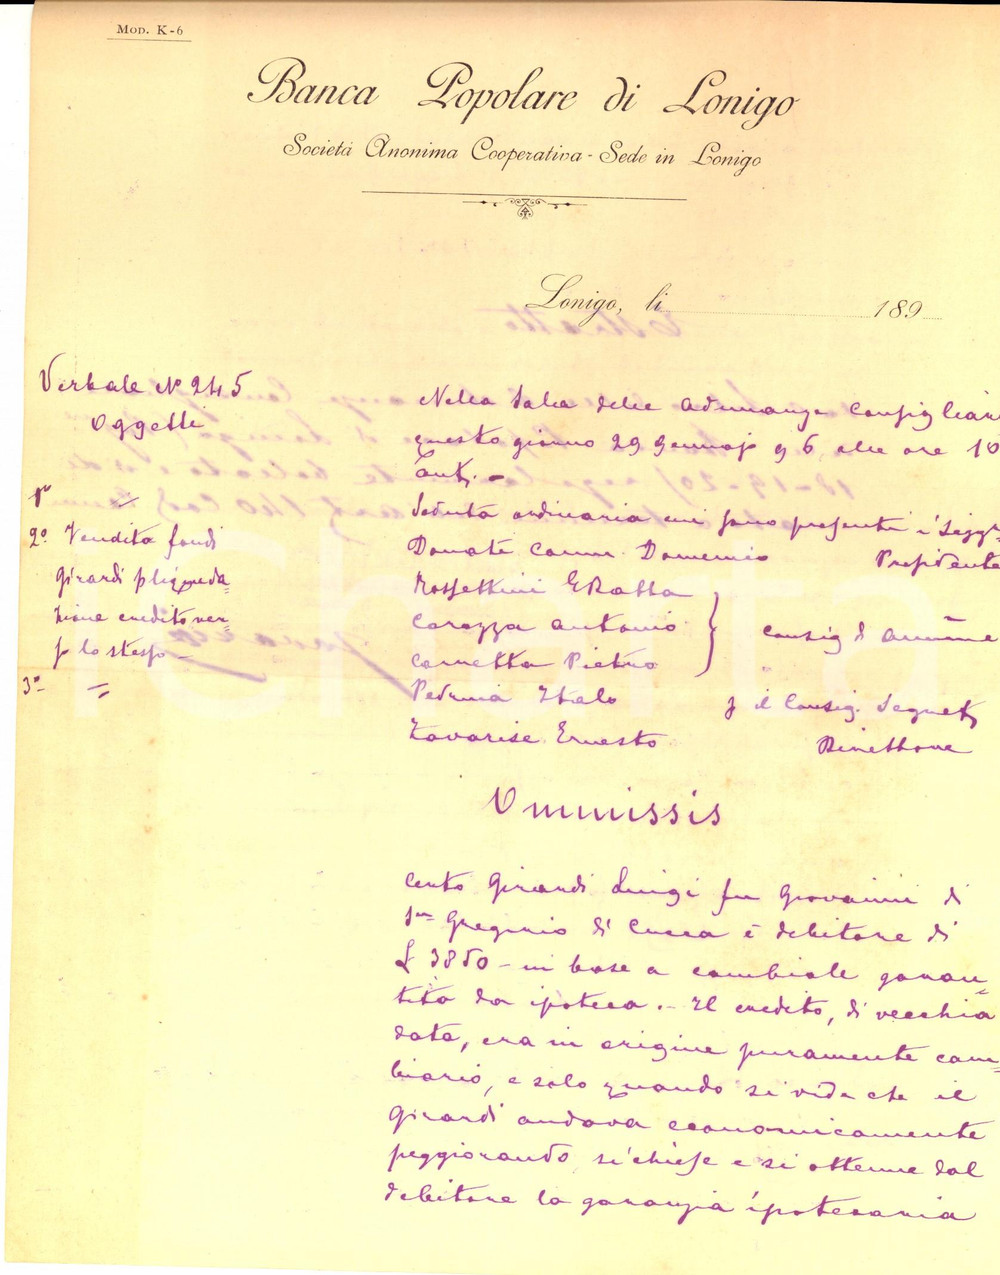 Mod. K-6
Banca Popolare di Lonigo
Società Anonima Cooperativa - Sede in Lonigo
Lonigo, li 189
Verbale N° 245
Oggetti
1° =
2° Vendita fondi
Girardi p liqueda-
zione credito ver-
so lo stesso -
3° =
Nella Sala delle adunanze Consigliari
questo giorno 29 Gennajo 96 alle ore 10
ant. -
Seduta ordinaria cui sono presenti i Sigg.ri
Donati Comm. Domenico Presidente
Rossettini
Carozza Antonio
Cornetta Pietro
consig. d'amm.ne
Pedrina Italo p il Consig. Segret.
Tavarise Ernesto Direttore
Ommissis
Certo Girardi Luigi fu Giovanni di
S.n Gregorio di Cucca è debitore di
£ 3850 - in base a cambiale garan-
tita da ipoteca. - Il credito, di vecchia
data, era in origine puramente cam-
biario, e solo quando si vide che il
Girardi andava economicamente
peggiorando, si chiese e si ottenne dal
debitore la garanzia ipotecaria
Icharta